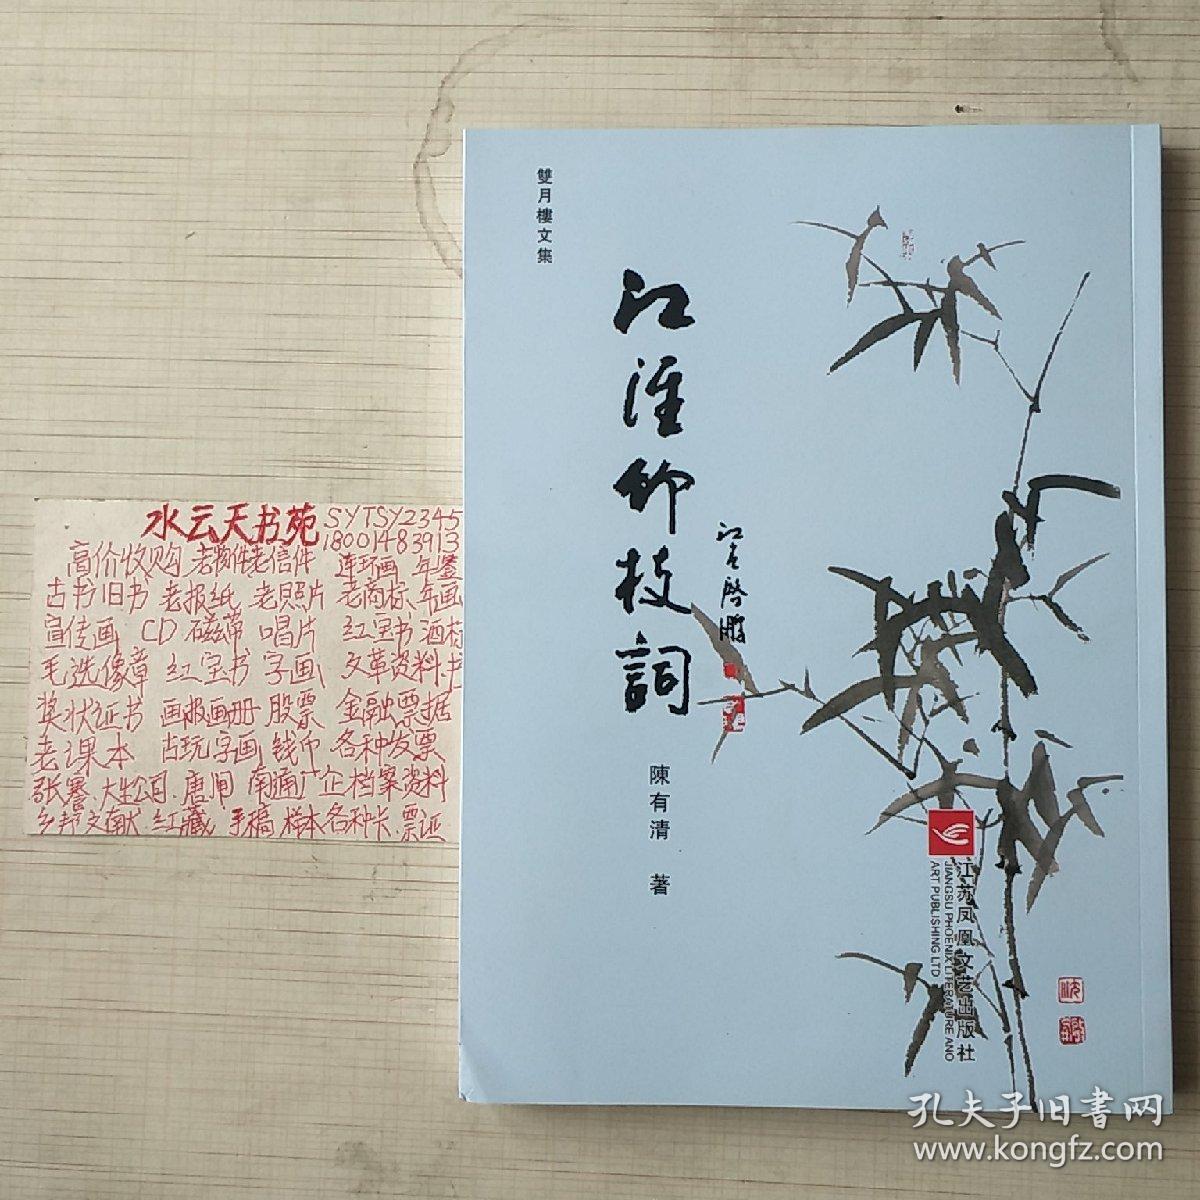 水云天书苑 SYTSY2345
18001483913
高价收购 老物件老信件 连环画 年鉴
古书旧书 老报纸 老照片 老商标 年画
宣传画 CD 磁带 唱片 红宝书 酒标
毛选像章 红宝书 字画 文革资料
奖状证书 画报画册 股票 金融票据
老课本 古玩字画 钱币 各种发票
张謇、大生公司、唐闸 南通厂企档案资料
乡邦文献、红藏 手稿 样本 各种卡、票证
雙月樓文集
江淮竹枝詞
陳有清 著
江苏凤凰文艺出版社
JIANGSU PHOENIX LITERATURE AND
ART PUBLISHING LTD
孔夫子旧書网
www.kongfz.com